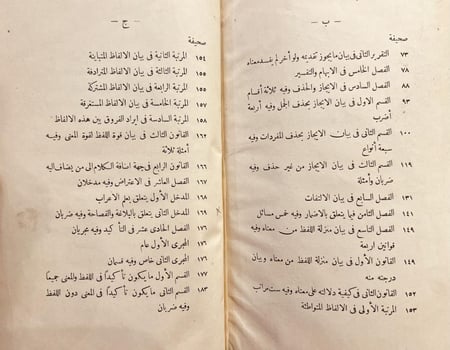 — ب —
صحيفة
٧٣ التقرير الثانى فى بيان مايجوز تقديمه ولو أخر لم يفسد معناه
٧٨ الفصل الخامس فى الابهام والتفسير
٨٨ الفصل السادس فى الايجاز والحذف وفيه ثلاثة أقسام
٩٣ القسم الاول فى بيان الايجاز بحذف الجمل وفيه أربعة
أضرب
١٠٠ القسم الثانى فى بيان الايجاز بحذف المفردات وفيه
سبعة أنواع
١١٩ القسم الثالث فى بيان الايجاز من غير حذف وفيه
ضربان وأمثلة
١٣١ الفصل السابع فى بيان الالتفات
١٤١ الفصل الثامن فيما يتعلق بالاضمار وفيه خمس مسائل
١٤٩ الفصل التاسع فى بيان منزلة اللفظ من معناه وفيه
قوانين اربعة
١٤٩ القانون الأول فى بيان منزلة اللفظ من معناه وبيان
درجته منه
١٥٢ القانون الثانى فى كيفية دلالته على معناه وفيه ست مراتب
١٥٣ المرتبة الأولى فى الالفاظ المتواطئة
— ج —
صحيفة
١٥٤ المرتبة الثانية فى بيان الالفاظ المتباينة
١٥٥ المرتبة الثالثة فى بيان الالفاظ المترادفة
١٥٥ المرتبة الرابعة فى بيان الالفاظ المشتركة
١٥٧ المرتبة الخامسة فى بيان الالفاظ المستغرقة
١٥٨ المرتبة السادسة فى ايراد الفروق بين هذه الالفاظ
١٦٢ القانون الثالث فى بيان قوة اللفظ لقوة المعنى وفيه
أمثلة ثلاثة
١٦٦ القانون الرابع فى جهة اضافة الكلام الى من يضاف اليه
١٦٧ الفصل العاشر فى الاعتراض وفيه مدخلان
١٦٧ المدخل الأول يتعلق بعلم الاعراب
المدخل الثانى يتعلق بالبلاغة والفصاحة وفيه ضربان
١٧٦ الفصل الحادى عشر فى التأكيد وفيه مجريان
١٧٦ المجرى الأول عام
١٧٧ المجرى الثانى خاص وفيه قسمان
١٧٧ القسم الأول مايكون تأكيدًا فى اللفظ والمعنى جميعًا
١٨٣ القسم الثانى مايكون تأكيدًا فى المعنى دون اللفظ
وفيه ضربان